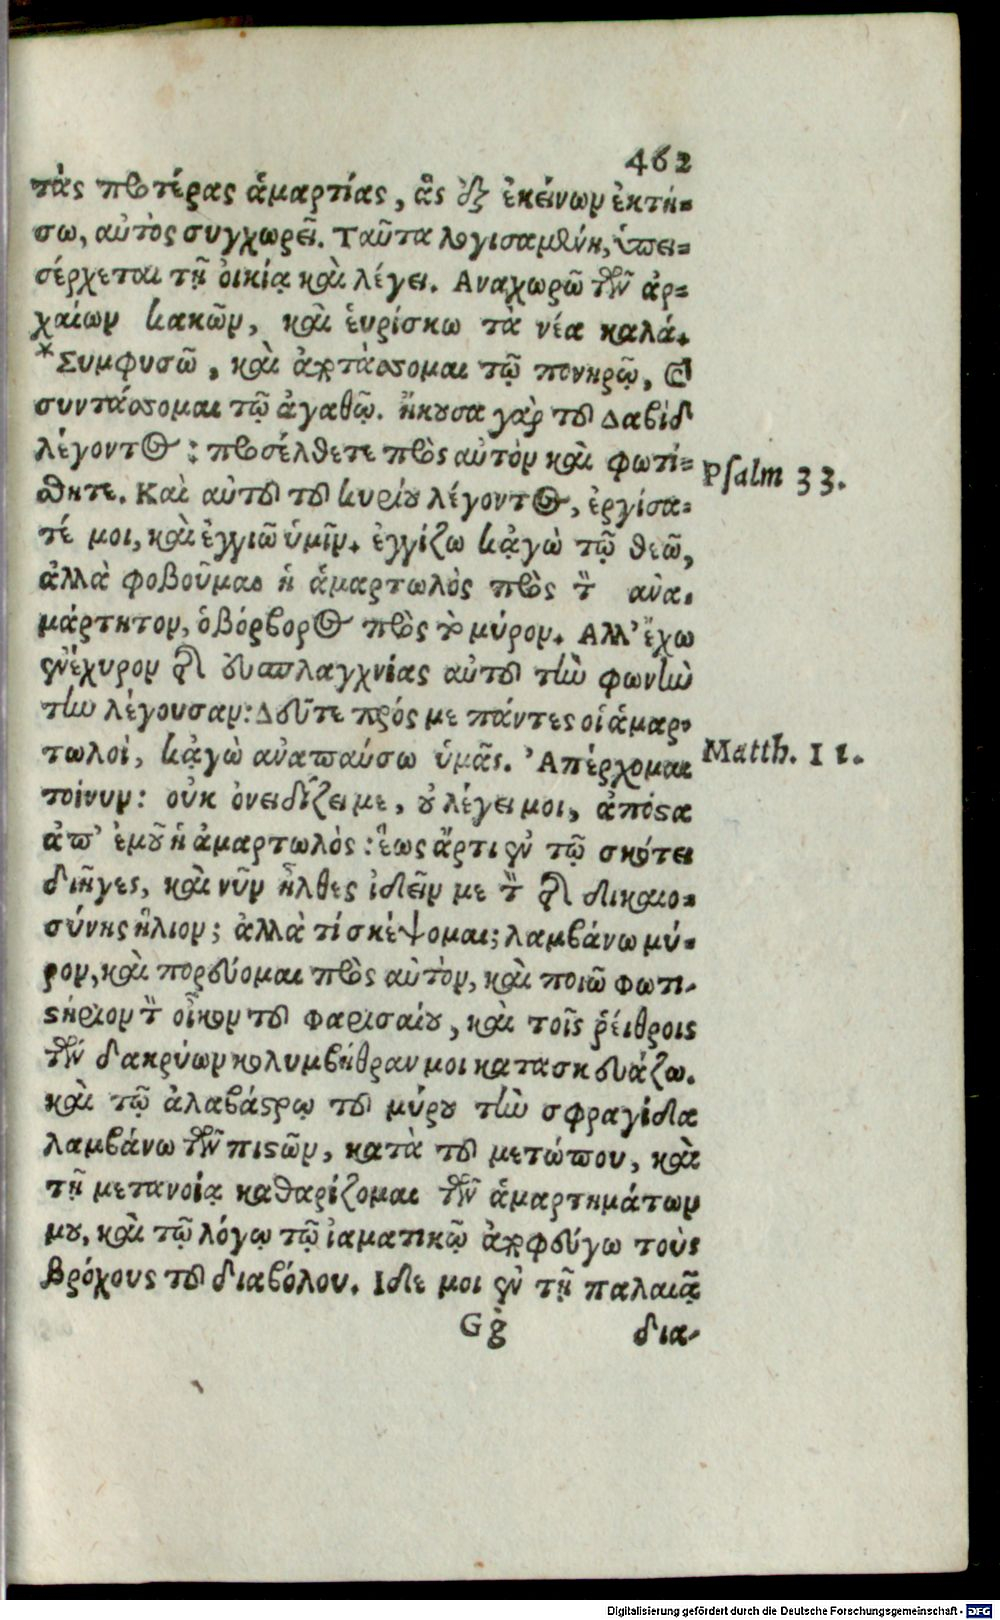 462
τὰς προτέρας ἁμαρτίας, ἃς ἐξ ἐκείνων ἐκτή-
σω, αὐτὸς συγχωρεῖ. Ταῦτα λογισαμένη, ὑπει-
σέρχεται τῇ οἰκίᾳ καὶ λέγει. Αναχωρῶ τῶν ἀρ-
χαίων κακῶν, καὶ ἑυρίσκω τὰ νέα καλά.
*Συμφυσῶ, καὶ ἀποτάσσομαι τῷ πονηρῷ, καὶ
συντάσσομαι τῷ ἀγαθῷ. ἤκουσα γὰρ τοῦ Δαβὶδ
λέγοντος: προσέλθετε πρὸς αὐτὸν καὶ φωτί-
σθητε. Καὶ αὐτοῦ τοῦ κυρίου λέγοντος, ἐργίσα-
Psalm 33.
τέ μοι, καὶ ἐγγιῶ ὑμῖν. ἐγγίζω κᾀγὼ τῷ θεῶ,
ἀλλὰ φοβοῦμαι ἡ ἁμαρτωλὸς πρὸς τὸν ἀνα-
μάρτητον, ὁ βόρβορος πρὸς τὸ μύρον. Αλλ' ἔχω
ἐνέχυρον τῆς ευσπλαγχνίας αὐτοῦ τὴν φωνὴν
τὴν λέγουσαν: Δεῦτε πρός με πάντες οἱ ἁμαρ-
τωλοὶ, κᾀγὼ αναπαύσω ὑμᾶς. Ἀπέρχομαι
Matth. 11.
τοίνυν: οὐκ ὀνειδίζει με, οὐ λέγει μοι, ἀπόστα
ἀπ' ἐμοῦ ἡ ἁμαρτωλὸς: ἕως ἄρτι ἐν τῷ σκότει
διῆγες, καὶ νῦν ἦλθες ἰδεῖν με τὸν τῆς δικαιο-
σύνης ἥλιον; ἀλλὰ τί σκέψομαι; λαμβάνω μύ-
ρον, καὶ πορεύομαι πρὸς αὐτὸν, καὶ ποιῶ φωτι-
στήριον τὸν οἶκον τοῦ Φαρισαίου, καὶ τοῖς ῥείθροις
τῶν δακρύων κολυμβήθραν μοι κατασκευάζω.
καὶ τῷ ἀλαβάστρῳ τοῦ μύρου τὴν σφραγίδα
λαμβάνω τῶν πιστῶν, κατὰ τοῦ μετώπου, καὶ
τῇ μετανοίᾳ καθαρίζομαι τῶν ἁμαρτημάτων
μου, καὶ τῷ λόγῳ τῷ ἰαματικῷ ἀποφεύγω τοὺς
βρόχους τοῦ διαβόλου. Ιδε μοι ἐν τῇ παλαιᾷ
Gg
δια-
Digitalisierung gefördert durch die Deutsche Forschungsgemeinschaft - DFG